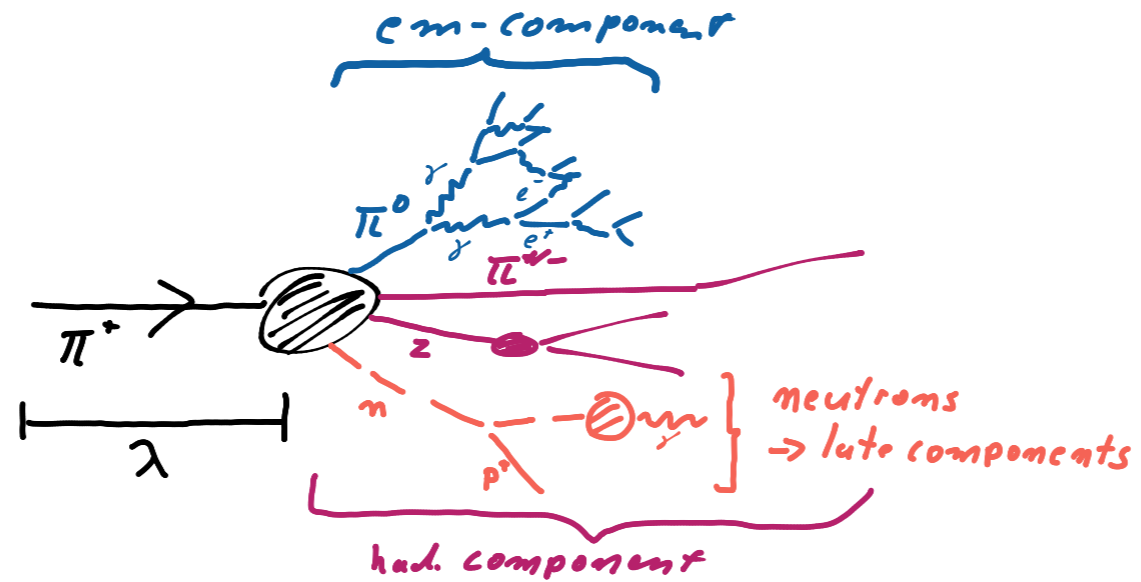 em-component
γ
e⁻
π⁰
γ
e⁺
π⁺/⁻
π⁺
z
n
neutrons
→ late components
γ
λ
p⁺
had. component